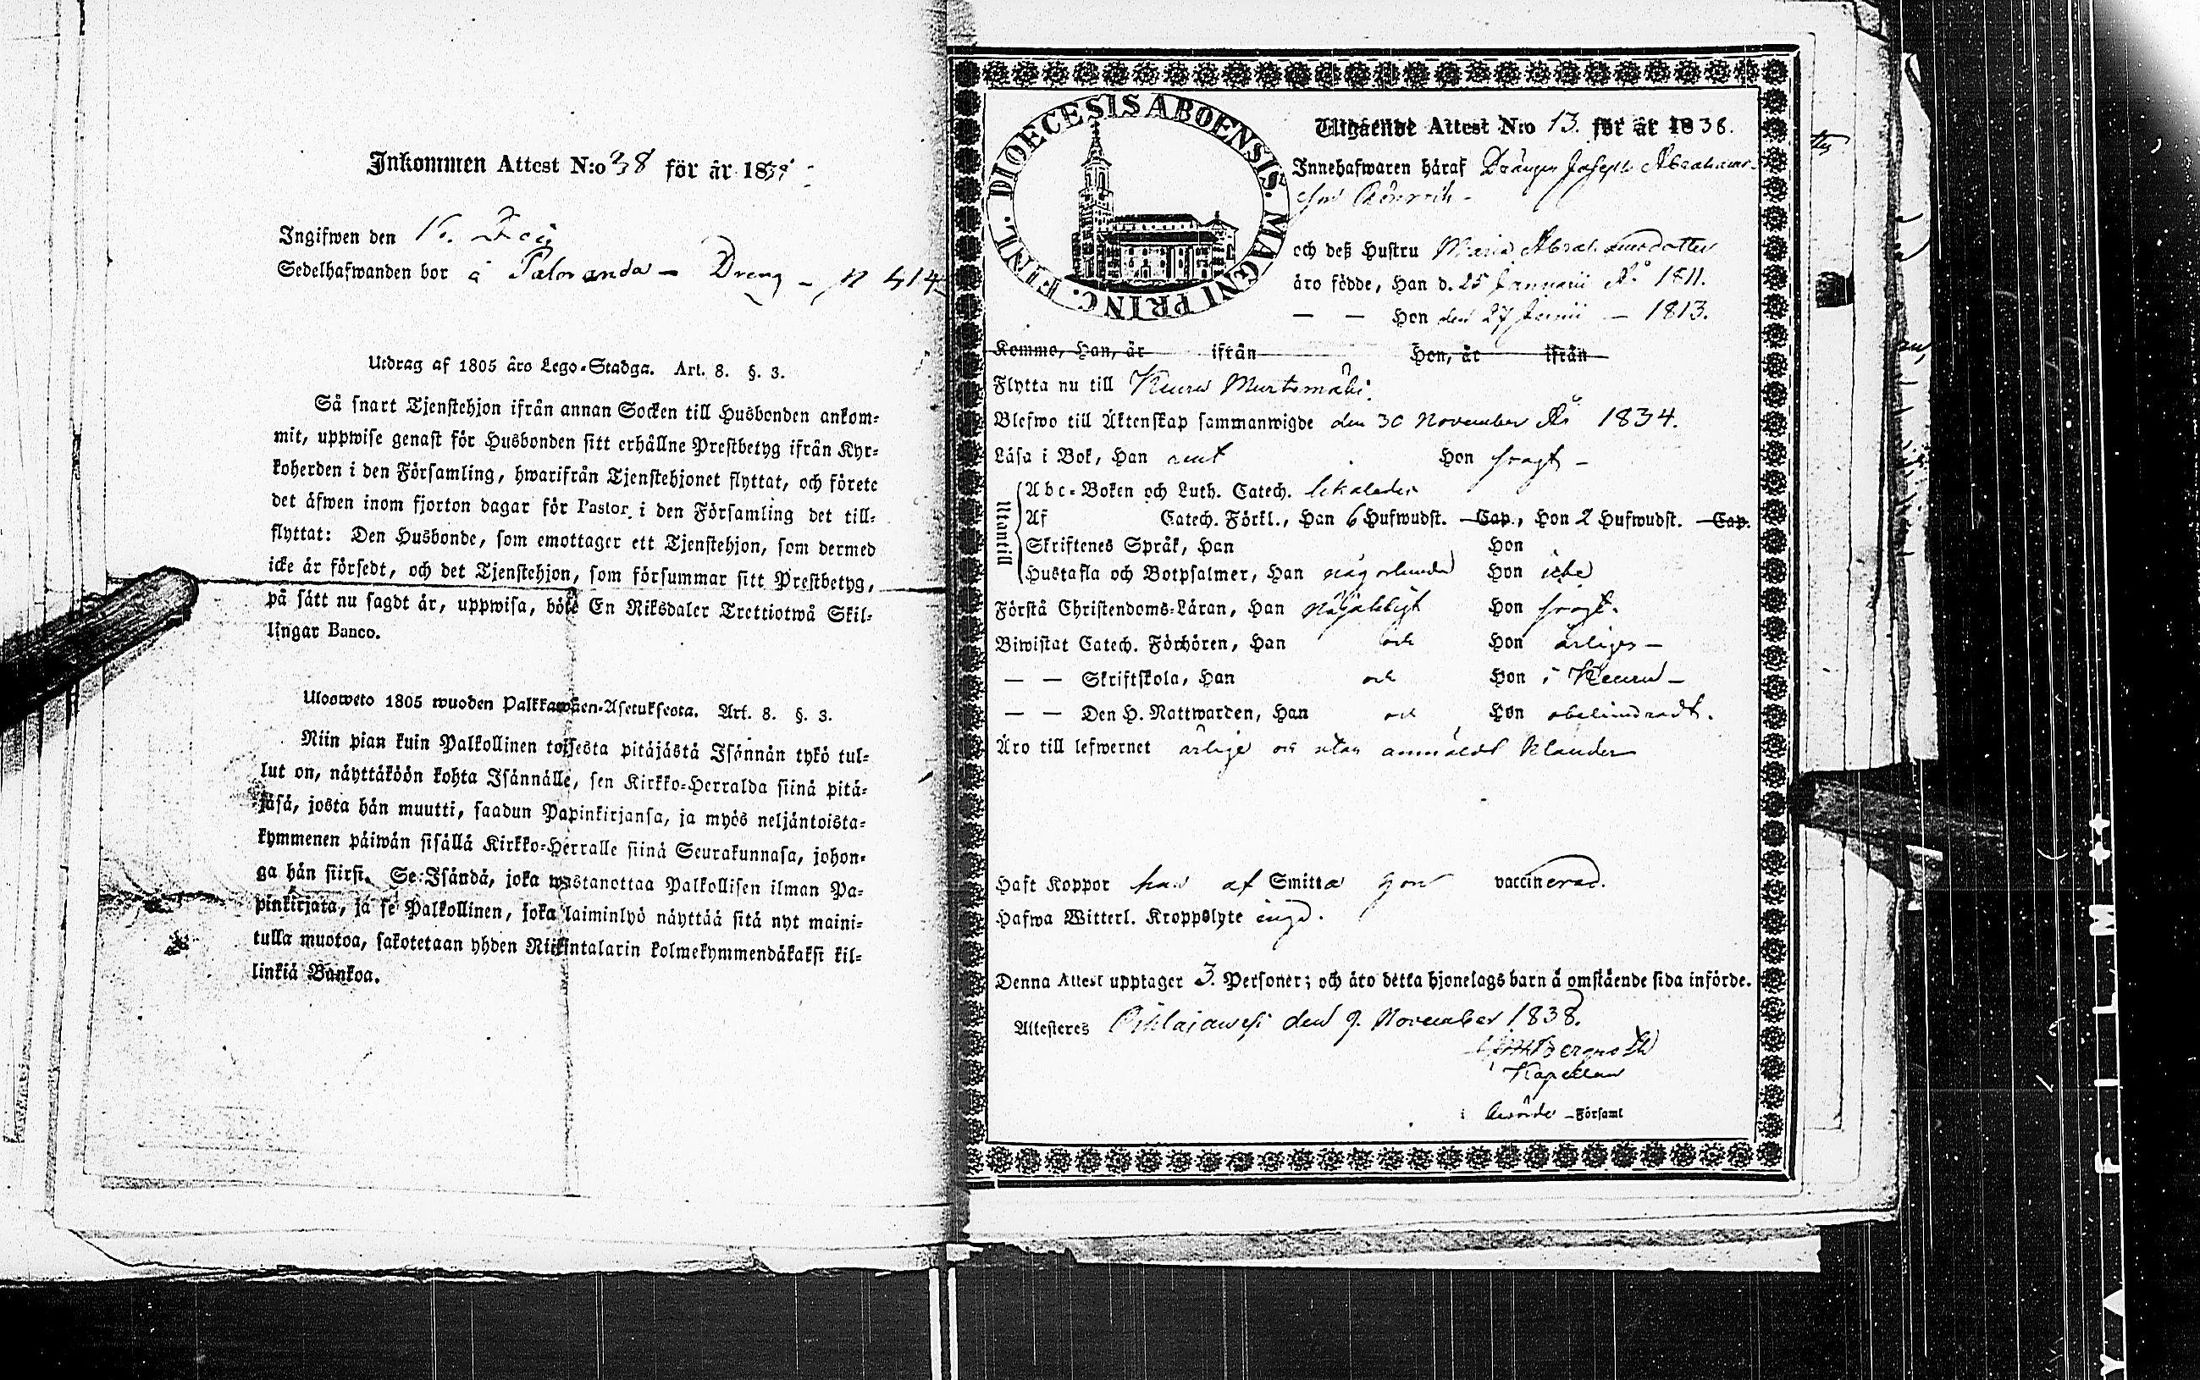 Inkommen Attest N:o 38 för år 18
Ingifwen den 16.
Sedelhafwanden bor å Paloranda – Dreng – p 414
Utdrag af 1805 års Lego-Stadga. Art. 8. §. 3.
Så snart Tjenstehjon ifrån annan Socken till Husbonden ankom-
mit, uppwise genast för Husbonden sitt erhållne Prestbetyg ifrån Kyr-
koherden i den Församling, hwarifrån Tjenstehjonet flyttat, och förete
det äfwen inom fjorton dagar för Pastor i den Församling det till-
flyttat: Den Husbonde, som emottager ett Tjenstehjon, som dermed
icke är försedt, och det Tjenstehjon, som försummar sitt Prestbetyg,
på sätt nu sagdt är, uppwisa, böte En Riksdaler Trettiotwå Skil-
lingar Banco.
Ulosweto 1805 wuoden Palkkawäen-Asetuksesta. Art. 8. §. 3.
Niin pian kuin Palkollinen toisesta pitäjästä Isännän tykö tul-
lut on, näyttäköön kohta Isännälle, sen Kirkko-Herralda siinä pitä-
jäsä, josta hän muutti, saadun Papinkirjansa, ja myös neljäntoista-
kymmenen päiwän sisällä Kirkko-Herralle siinä Seurakunnasa, johon-
ga hän siirsi. Se Isändä, joka wastanottaa Palkollisen ilman Pa-
pinkirjata, ja se Palkollinen, joka laiminlyö näyttää sitä nyt maini-
tulla muotoa, sakotetaan yhden Riikintalarin kolmekymmendäkaksi kil-
linkiä Bankoa.
DIOECESIS ABOENSIS. MAGNI PRINC. FINL.
Utgående Attest N:o 13. för år 1838.
Innehafwaren häraf Drängen Joseph Abrahams-
son
och deß Hustru Maria Abrahamsdotter
äro födde, Han d. 25 Januarii År 1811.
— — Hon den 27 Junii — 1813.
Komne, Han, år ifrån Hon, år ifrån
Flytta nu till Keuru Murtomäki.
Blefwo till Äktenskap sammanwigde den 30 November År 1834.
Läsa i Bok, Han rent Hon swagt –
Utantill
Abc-Boken och Luth. Catech.
Af Catech. Förkl., Han 6 Hufwudst. Cap., Hon 2 Hufwudst. Cap.
Skriftenes Språk, Han Hon
Hustafla och Botpsalmer, Han någorlunda Hon icke
Förstå Christendoms-Läran, Han Hon swagt.
Biwistat Catech. Förhören, Han och Hon årligen –
— — Skriftskola, Han och Hon i Keuru –
— — Den H. Nattwarden, Han och Hon obehindradt.
Äro till lefwernet ärlige och utan anmäldt klander
Haft Koppor han af Smitta hon vaccinerad.
Hafwa Witterl. Kroppslyte inga.
Denna Attest upptager 3. Personer; och äro detta hjonelags barn å omstående sida införde.
Attesteres Pihlajawesi den 9. November 1838.
Bergroth
Kapellan
i Församl
MYAFILM